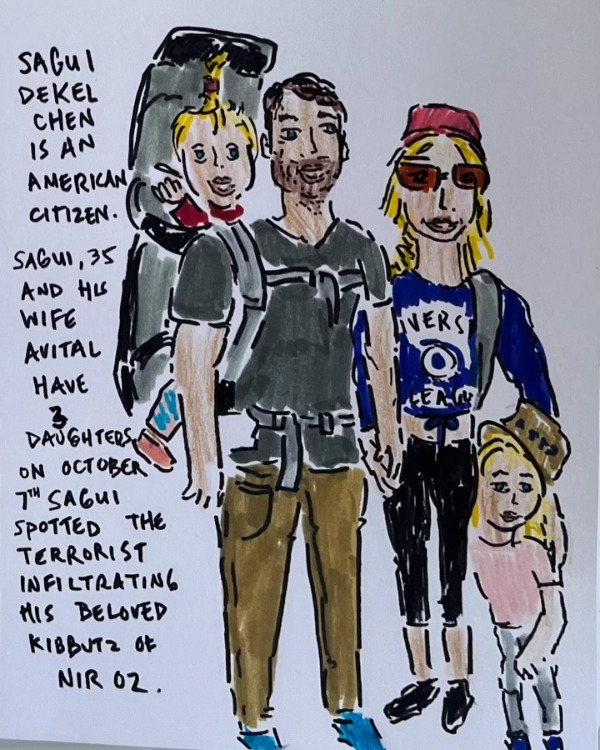 SAGUI
DEKEL
CHEN
IS AN
AMERICAN
CITIZEN.
SAGUI, 35
AND HIS
WIFE
AVITAL
HAVE
3
DAUGHTERS
ON OCTOBER
7TH SAGUI
SPOTTED THE
TERRORIST
INFILTRATING
HIS BELOVED
KIBBUTZ OF
NIR OZ.
IVERS